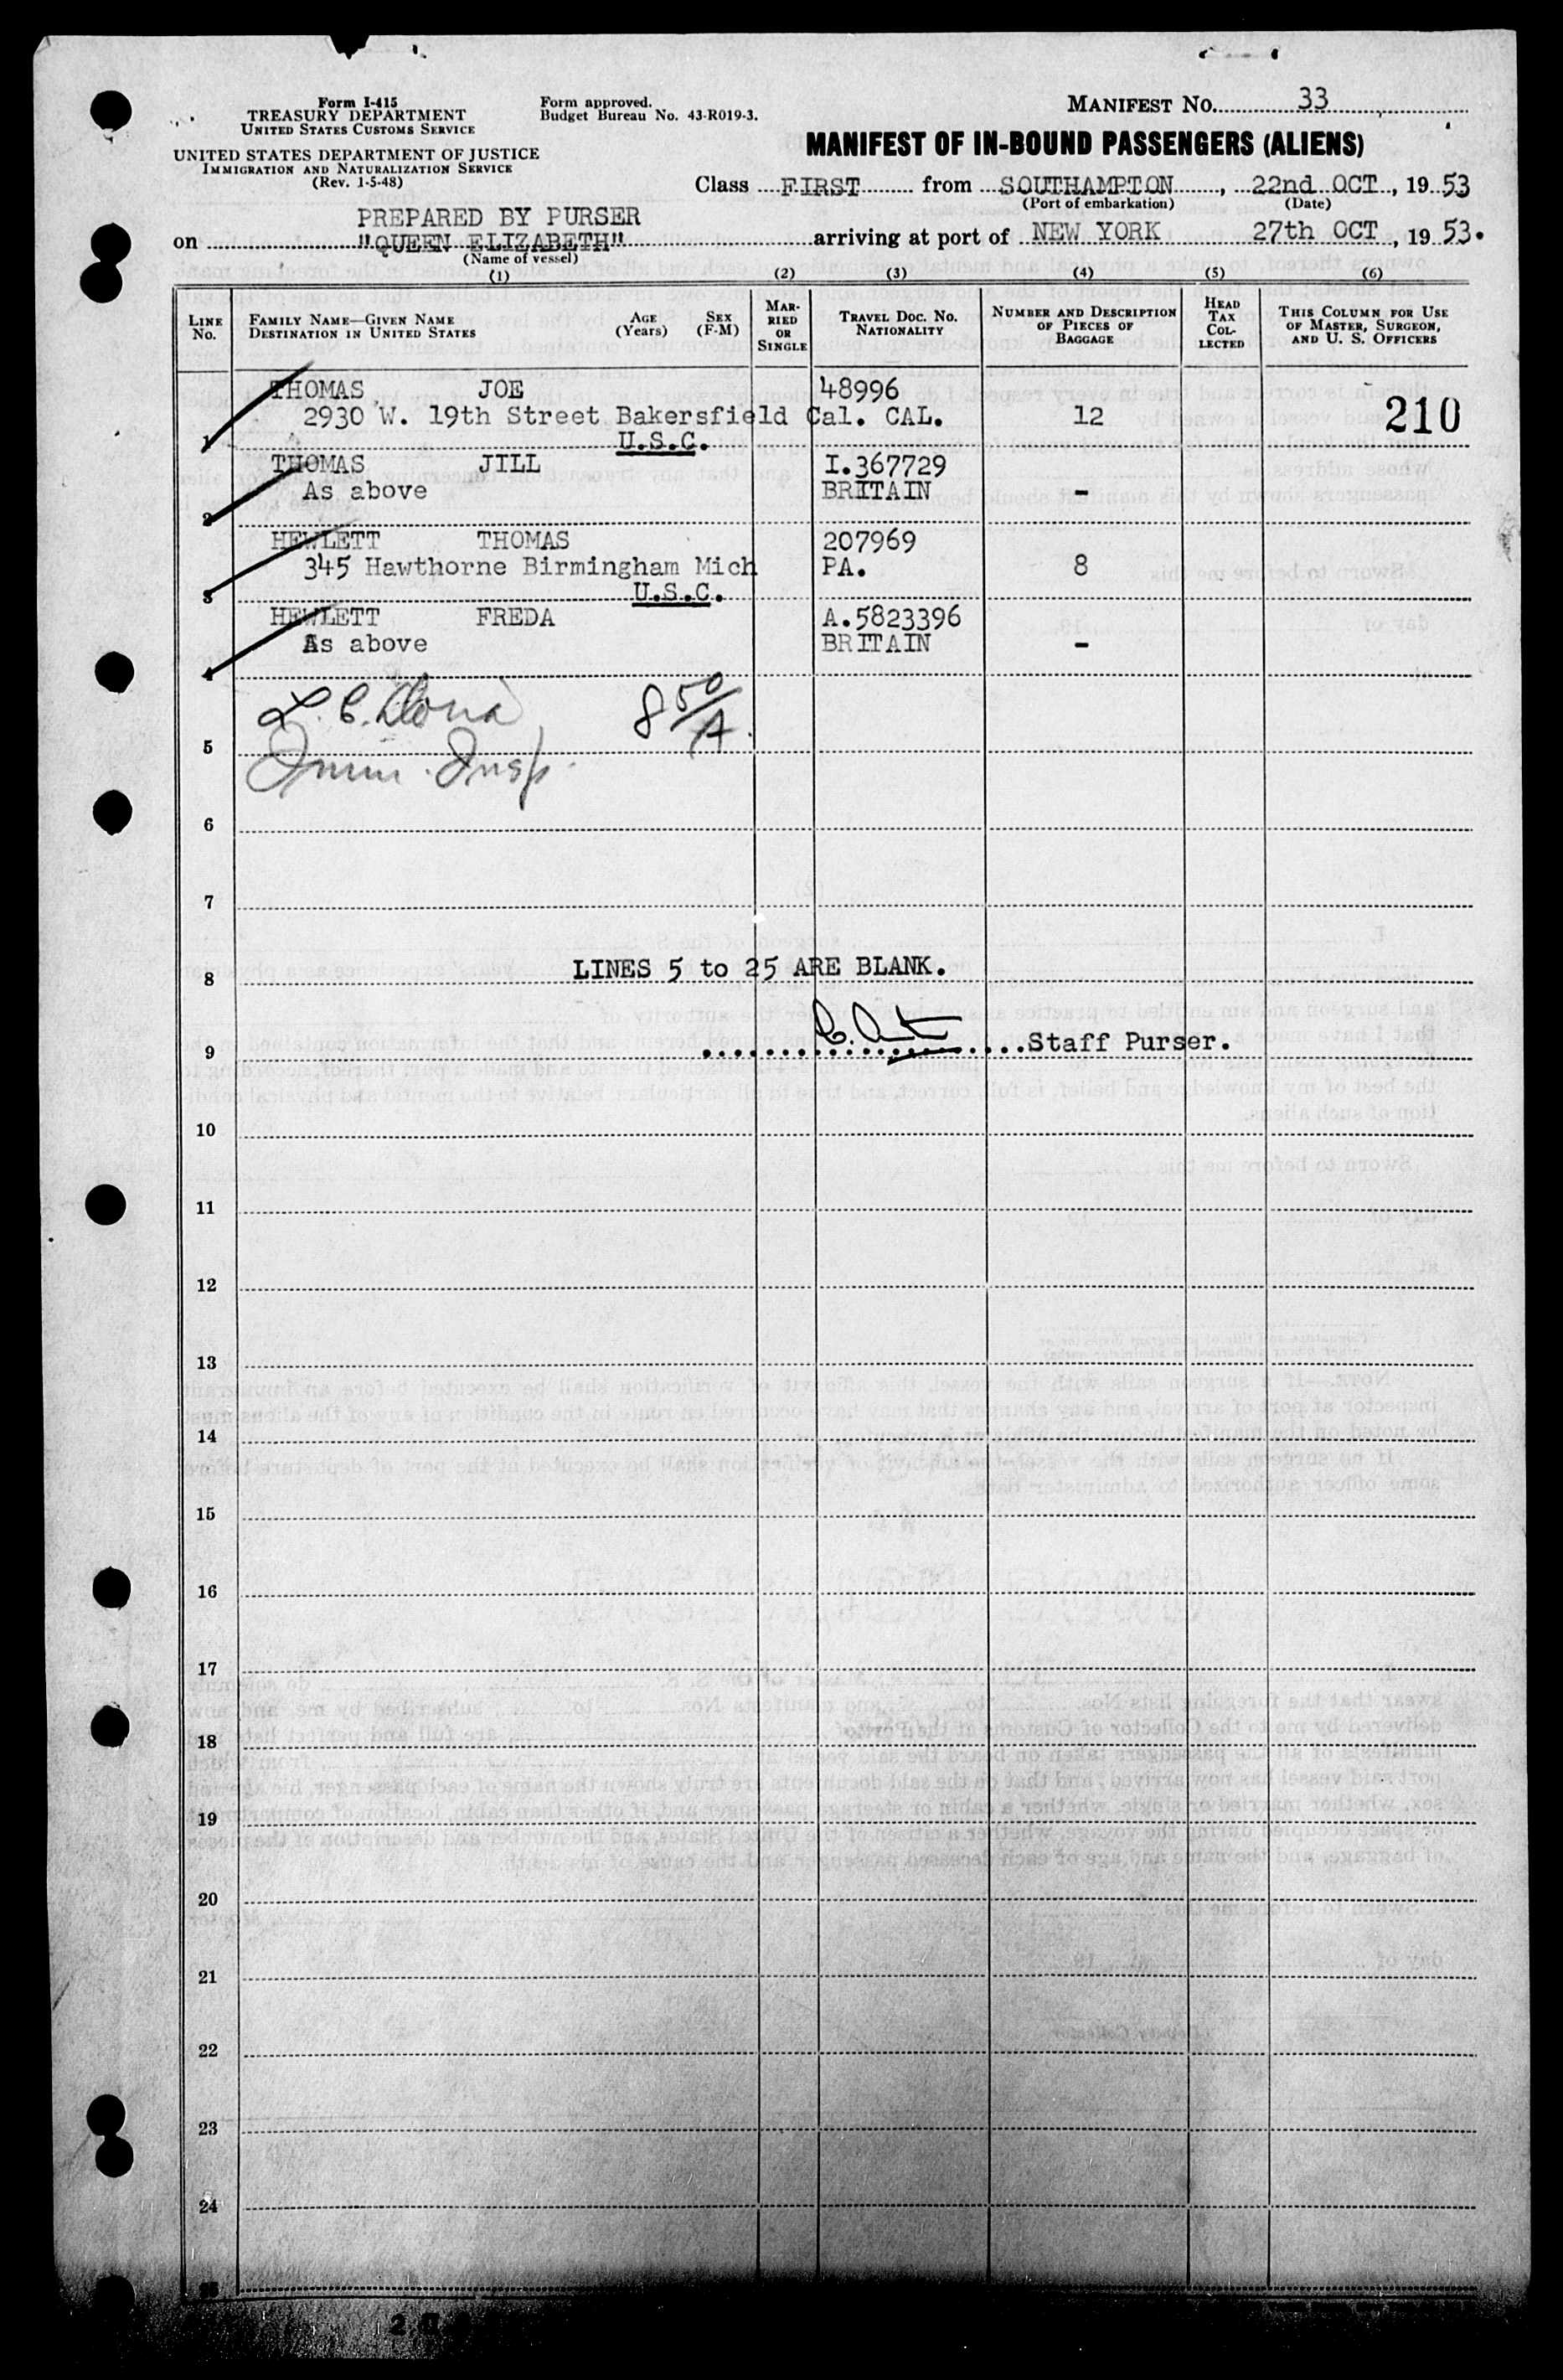 Form I-415
TREASURY DEPARTMENT
UNITED STATES CUSTOMS SERVICE
UNITED STATES DEPARTMENT OF JUSTICE
IMMIGRATION AND NATURALIZATION SERVICE
(Rev. 1-5-48)
Form approved.
Budget Bureau No. 43-R019-3.
MANIFEST NO. 33
MANIFEST OF IN-BOUND PASSENGERS (ALIENS)
Class FIRST from SOUTHAMPTON, 22nd OCT, 19 53
(Port of embarkation) (Date)
PREPARED BY PURSER
on "QUEEN ELIZABETH" arriving at port of NEW YORK 27th OCT, 19 53.
(Name of vessel)
(1) (2) (3) (4) (5) (6)
LINE NO. FAMILY NAME—GIVEN NAME DESTINATION IN UNITED STATES AGE (Years) SEX (F-M) MARRIED OR SINGLE TRAVEL DOC. NO. NATIONALITY NUMBER AND DESCRIPTION OF PIECES OF BAGGAGE HEAD TAX COLLECTED THIS COLUMN FOR USE OF MASTER, SURGEON, AND U. S. OFFICERS
THOMAS JOE 48996
2930 W. 19th Street Bakersfield Cal. CAL. 12 210
1 U.S.C.
THOMAS JILL I.367729
As above BRITAIN -
2
HEWLETT THOMAS 207969
345 Hawthorne Birmingham Mich PA. 8
3 U.S.C.
HEWLETT FREDA A.5823396
As above BRITAIN -
4
L. C. 8 50/A
5
Imm. Insp.
6
7
LINES 5 to 25 ARE BLANK.
8
9 Staff Purser.
10
11
12
13
14
15
16
17
18
19
20
21
22
23
24
25